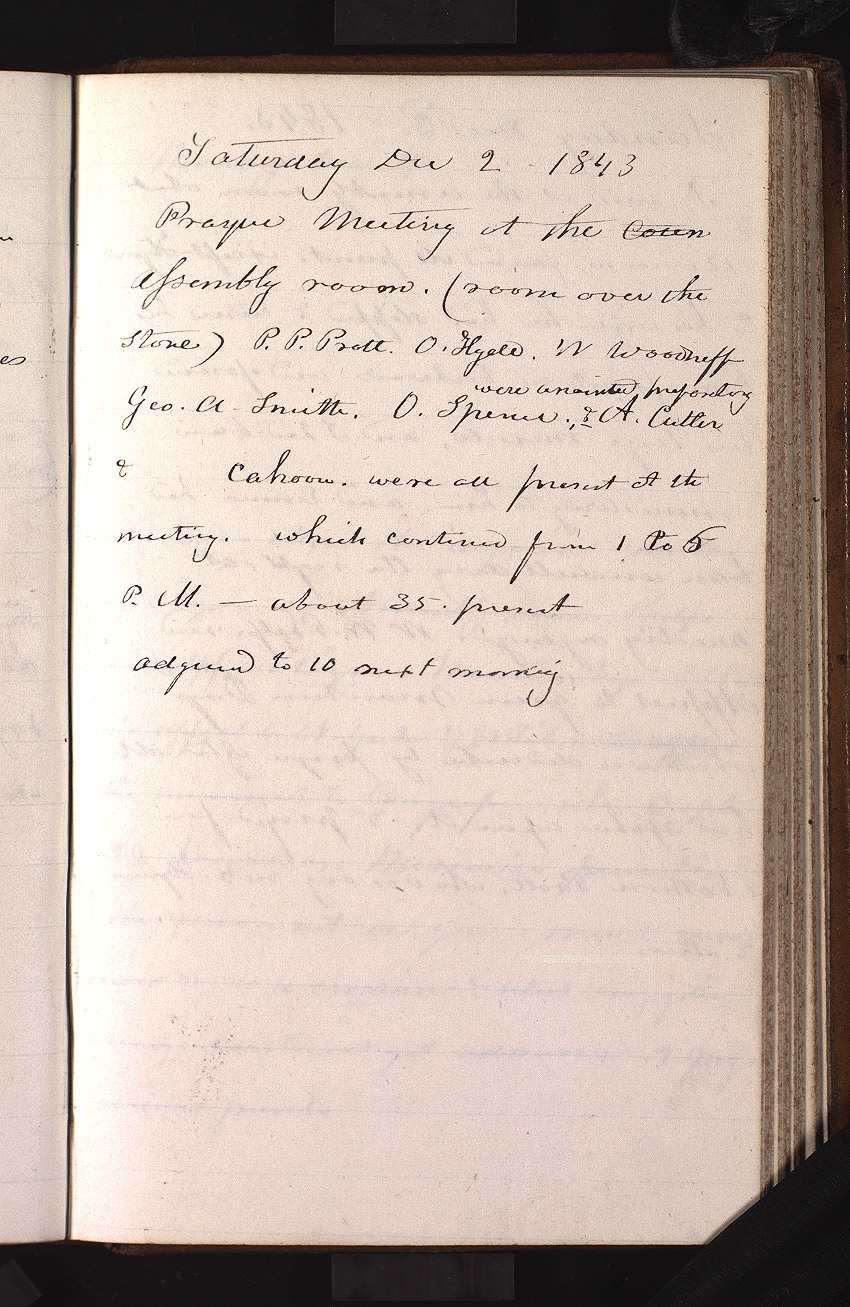 Saturday Dec 2 - 1843
Prayer Meeting at the Coun
assembly room. (room over the
Store) P. P. Pratt. O. Hyde. W Woodruff
were anointed preparatory
Geo. A. Smith. O. Spencer. & A. Cutler
& Cahoon. were all present at the
meeting. which continued from 1 to 6
P. M. — about 35. present
adjourned to 10 next morning